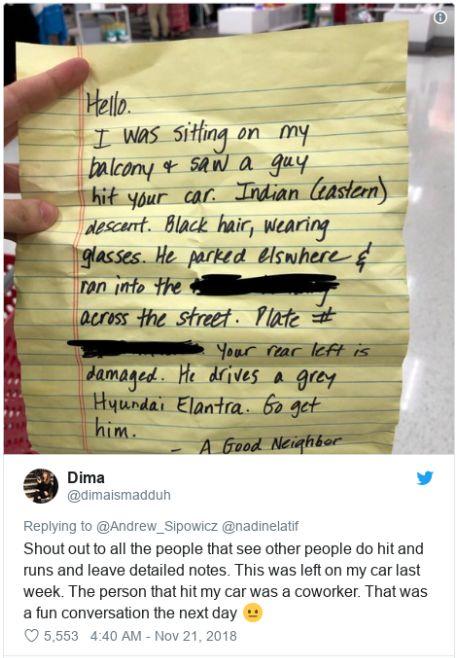 Hello.
I was sitting on my
balcony & saw a guy
hit your car. Indian (eastern)
descent. Black hair, wearing
glasses. He parked elswhere &
ran into the
across the street. Plate #
Your rear left is
damaged. He drives a grey
Hyundai Elantra. Go get
him.
- A Good Neighbor
Dima
@dimaismadduh
Replying to @Andrew_Sipowicz @nadinelatif
Shout out to all the people that see other people do hit and
runs and leave detailed notes. This was left on my car last
week. The person that hit my car was a coworker. That was
a fun conversation the next day 😐
5,553 4:40 AM - Nov 21, 2018